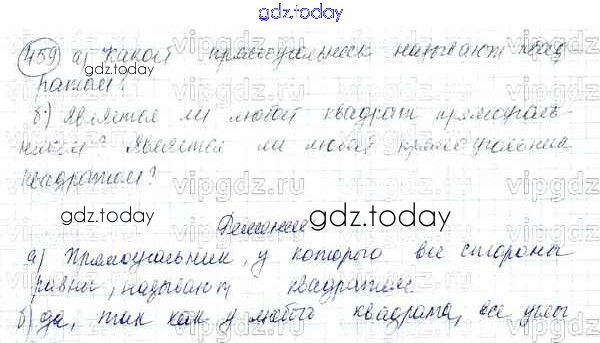 gdz.today
459 а) Какой прямоугольник называют квад
ратом?
gdz.today
б) Является ли любой квадрат прямоуголь-
ником? Является ли любой прямоугольник
квадратом?
vipgdz.ru
gdz.today
Решение
gdz.today
а) Прямоугольник, у которого все стороны
равны, называют квадратом.
б) да, так как у любого квадрата, все углы